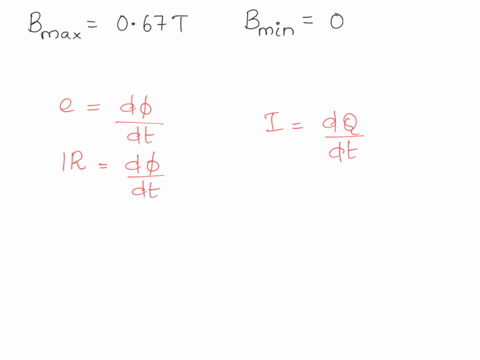 B_max = 0.67T
B_min = 0
e = dϕ/dt
I = dQ/dt
IR = dϕ/dt